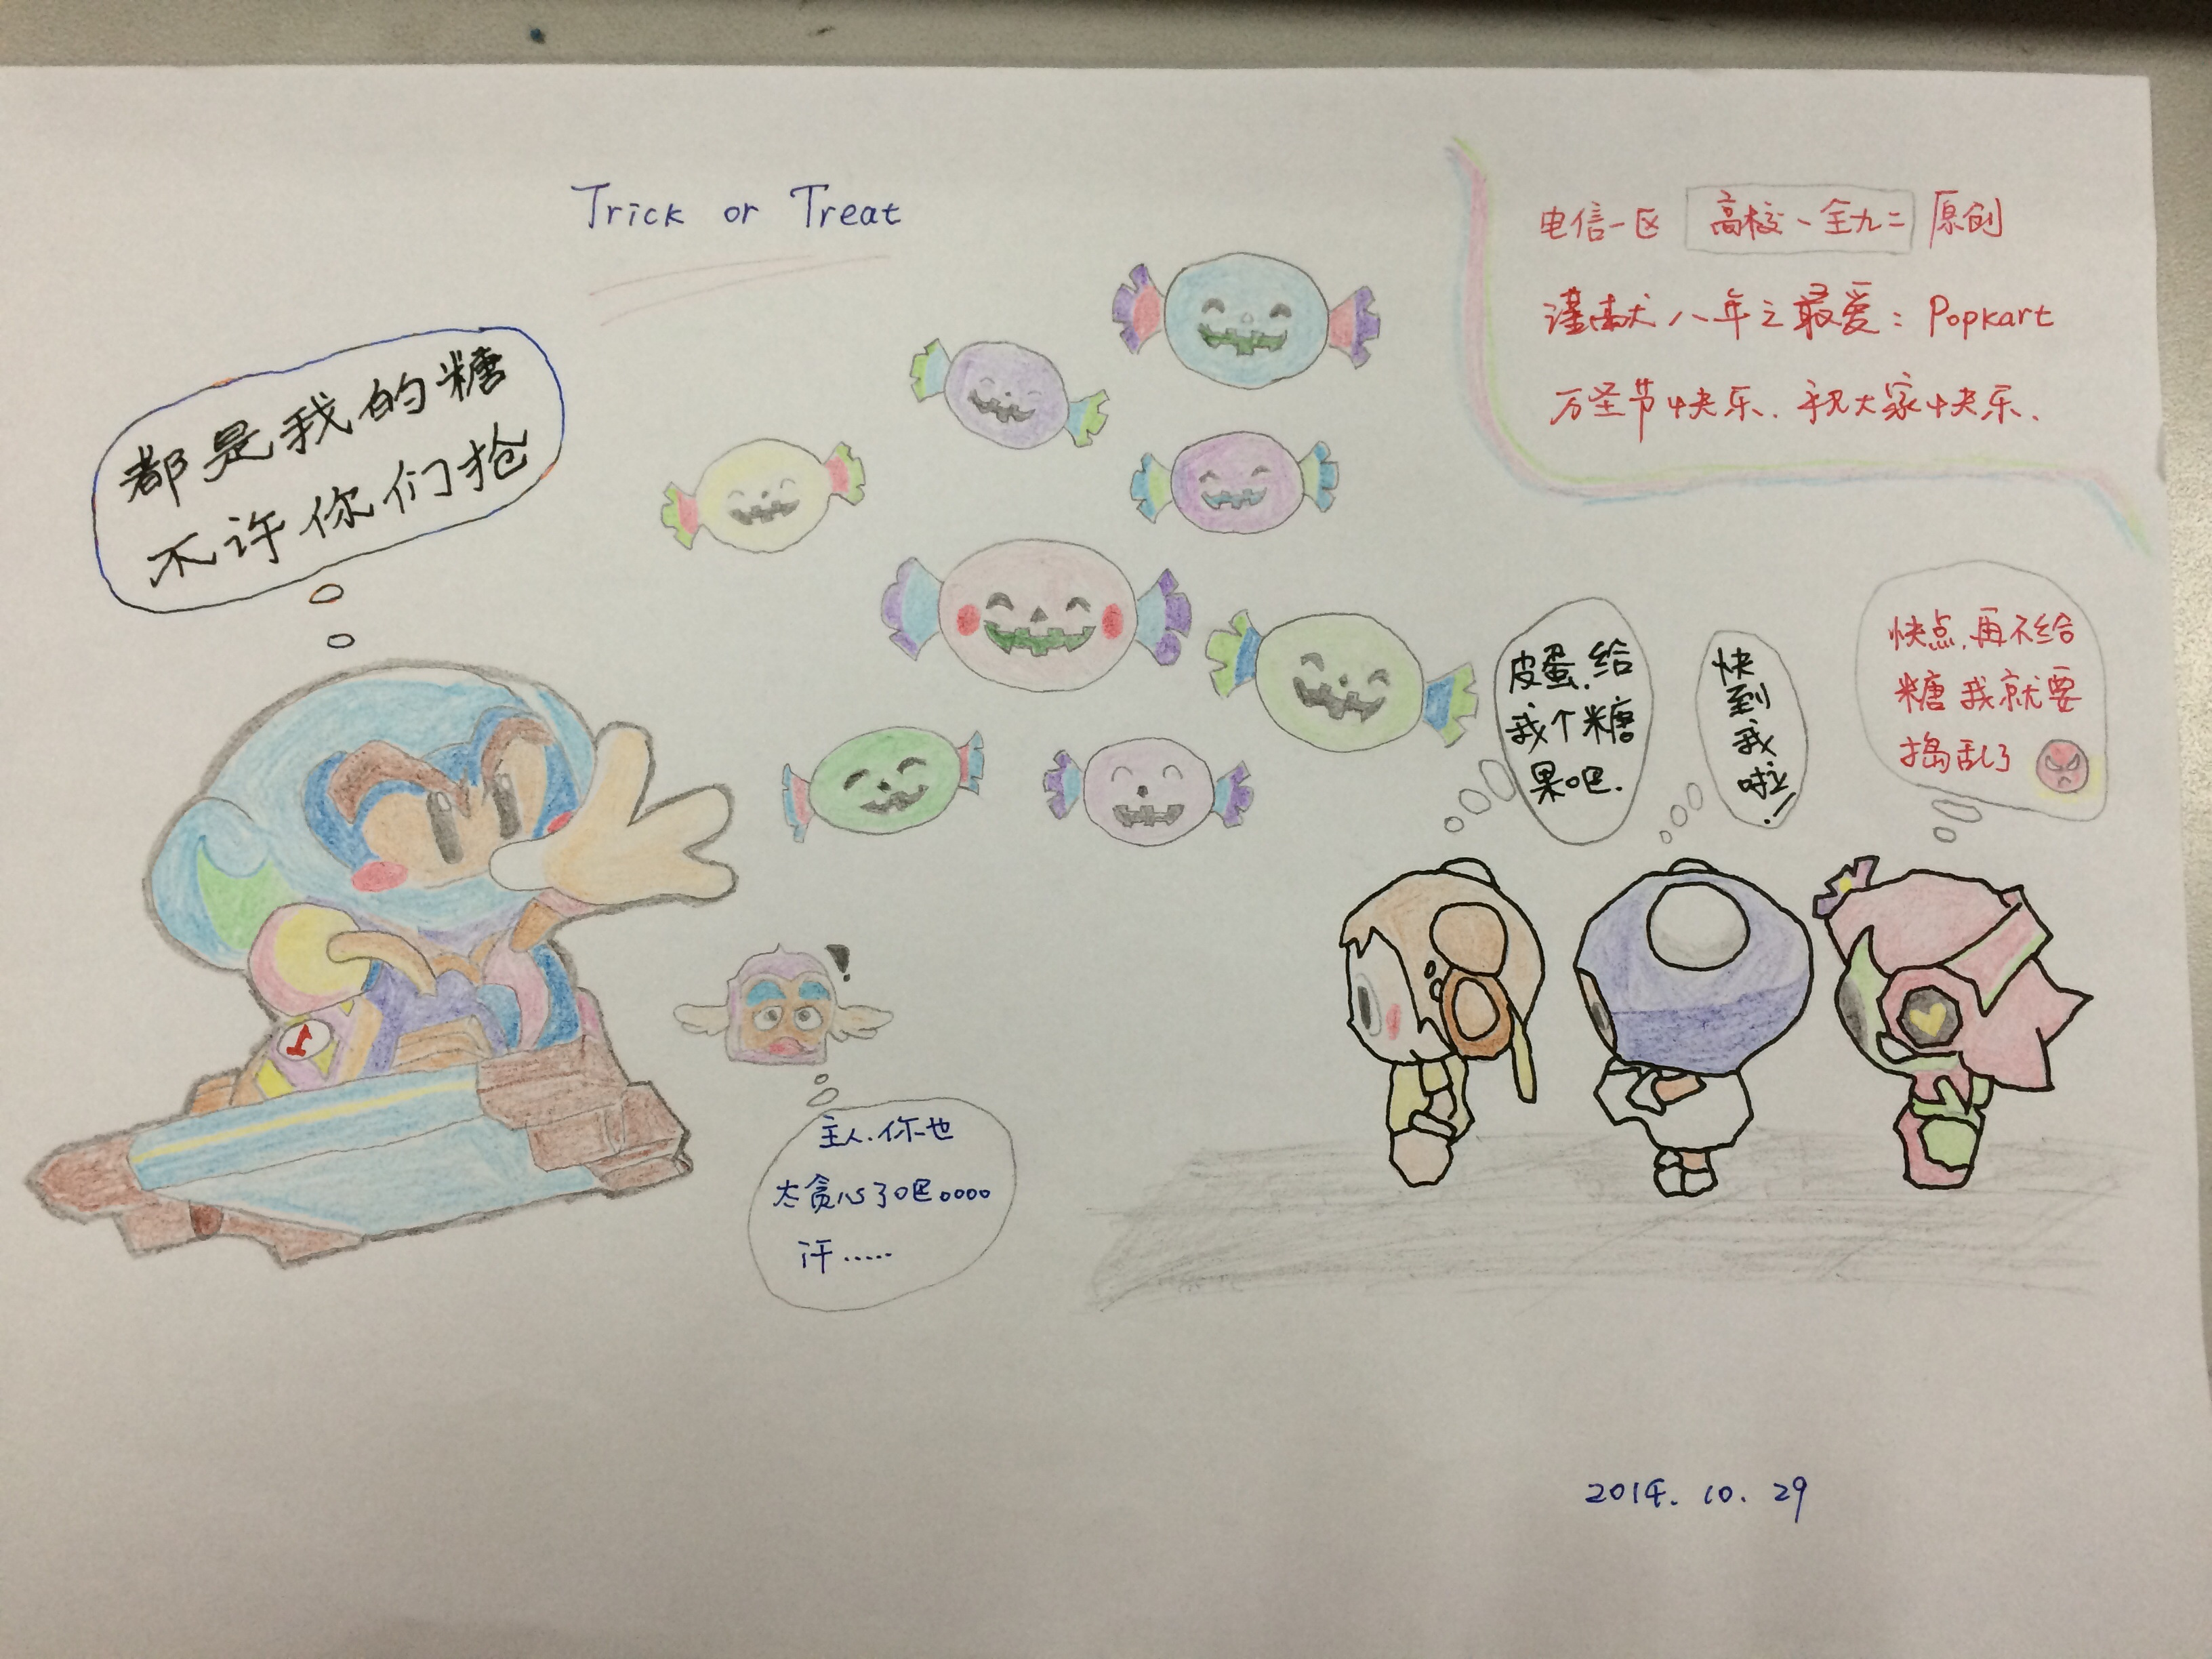 Trick or Treat
电信一区 高校丶全九二 原创
谨献八年之最爱：Popkart
万圣节快乐、祝大家快乐、
都是我的糖
不许你们抢
皮蛋、给
我个糖
果吧.
快
到
我
啦!
快点,再不给
糖我就要
捣乱了
主人.你也
太贪心了吧。。。。
汗……
2014. 10. 29